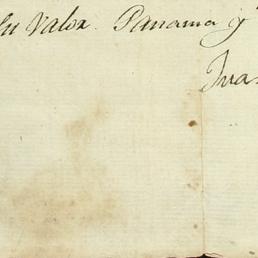 su Valor. Panama y
Jua